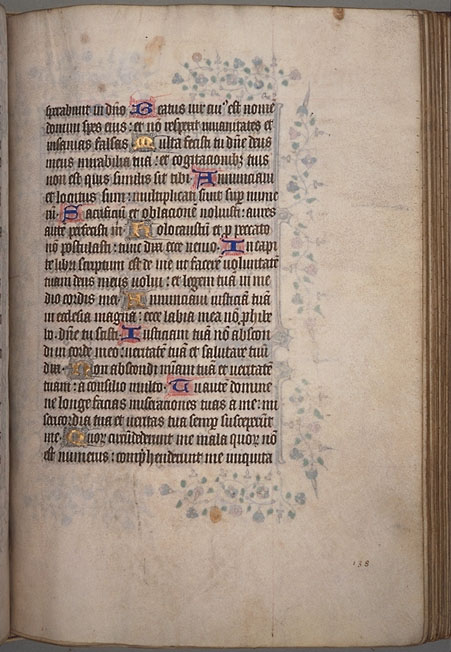 sperabunt in dño Beatus vir cui' est nomē
domini spes eius : et nō respexit in uanitates et
insanias falsas Multa fecisti tu dñe deus
meus mirabilia tua : et cogitacionibꝫ tuis
non est quis similis sit tibi Annunciaui
et locutus sum : multiplicati sunt sup nume
rū Sacrificiū et oblacionē noluisti : aures
autē perfecisti m̄ Holocaustū et p peccato
nō postulasti : tunc dixi ecce uenio In capi
te libri scriptum est de me ut facerē uoluntatē
tuam deus meus uolui : et legem tuā in me
dio cordis mei Annunciaui iusticiā tuā
in ecclesia magna : ecce labia mea nō phibe
bo dñe tu scisti Iusticiam tuā nō abscon
di in corde meo : ueritatē tuā et salutare tuū
dixi Non abscondi mīam tuā et ueritatē
tuam : a consilio multo Tu autē domine
ne longe facias miseraciones tuas a me : mi
sericordia tua et ueritas tua semp susceperūt
me Quoniā circūdederunt me mala quorū nō
est numerus : comphenderunt me iniquita
138